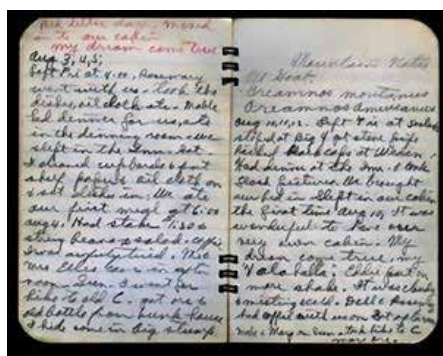 Red letter day, moved
in to our cabin
my dream come true
Aug 3, 4, 5,
Left Fri at 4:00. Rosemary
went with us - took the
dishes, oil cloth etc. Mable
had dinner for us, ate
in the dinning room - we
slept in the Inn. Sat.
I cleaned cupboards & put
shelf papers oil cloth on
& set dishes in. We ate
our first meal at 6:00
Aug 4. Had steak
string beans & salad. Coffee
I was awfully tired.
Mrs were in after
noon. Sun. I went for
hike to old C. got
old bottles from bunk house
& hide some in big stump.
Mountain Notes
Mt Goat.
Oreamnos montanus
Oreamnos americanus
Aug 10, 11, 12. Left Fri at
stopped at Big 4 at stove pipe
at
Had dinner at the Inn. & took
pictures. We brought
our bed in. Slept in our cabin
the first time Aug 10, it was
wonderful to have our
very own cabin. My
dream come true, my
Valahalla. Eddie put on
more shake. It was cloudy
& misting cold. Dell & Rosemary
had coffee with us on
Took hike to C.
more ore.